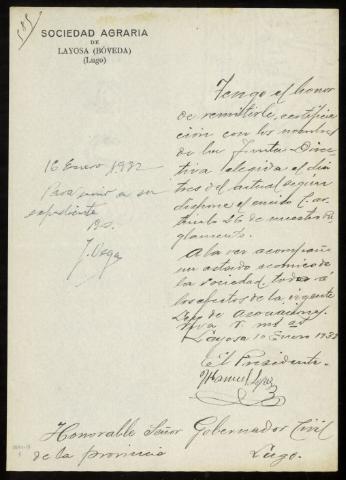 585
SOCIEDAD AGRARIA
DE
LAYOSA (BÓVEDA)
(Lugo)
Tengo el honor
de remitirle, certifica
ción con los nombres
de la Junta Direc
tiva elegida el dia
tres del actual según
dispone el artí
culo 26 de nuestro Re
glamento.
A la vez acompaño
un estado económico de
la sociedad, todo a
los efectos de la vigente
Ley de asociaciones.
Viva V. ms as
Layosa 10 Enero 1932
El Presidente
Manuel López
16 Enero 1932
Para unir a su
expediente
J. Vega
Honorable Señor Gobernador Civil
de la provincia Lugo.